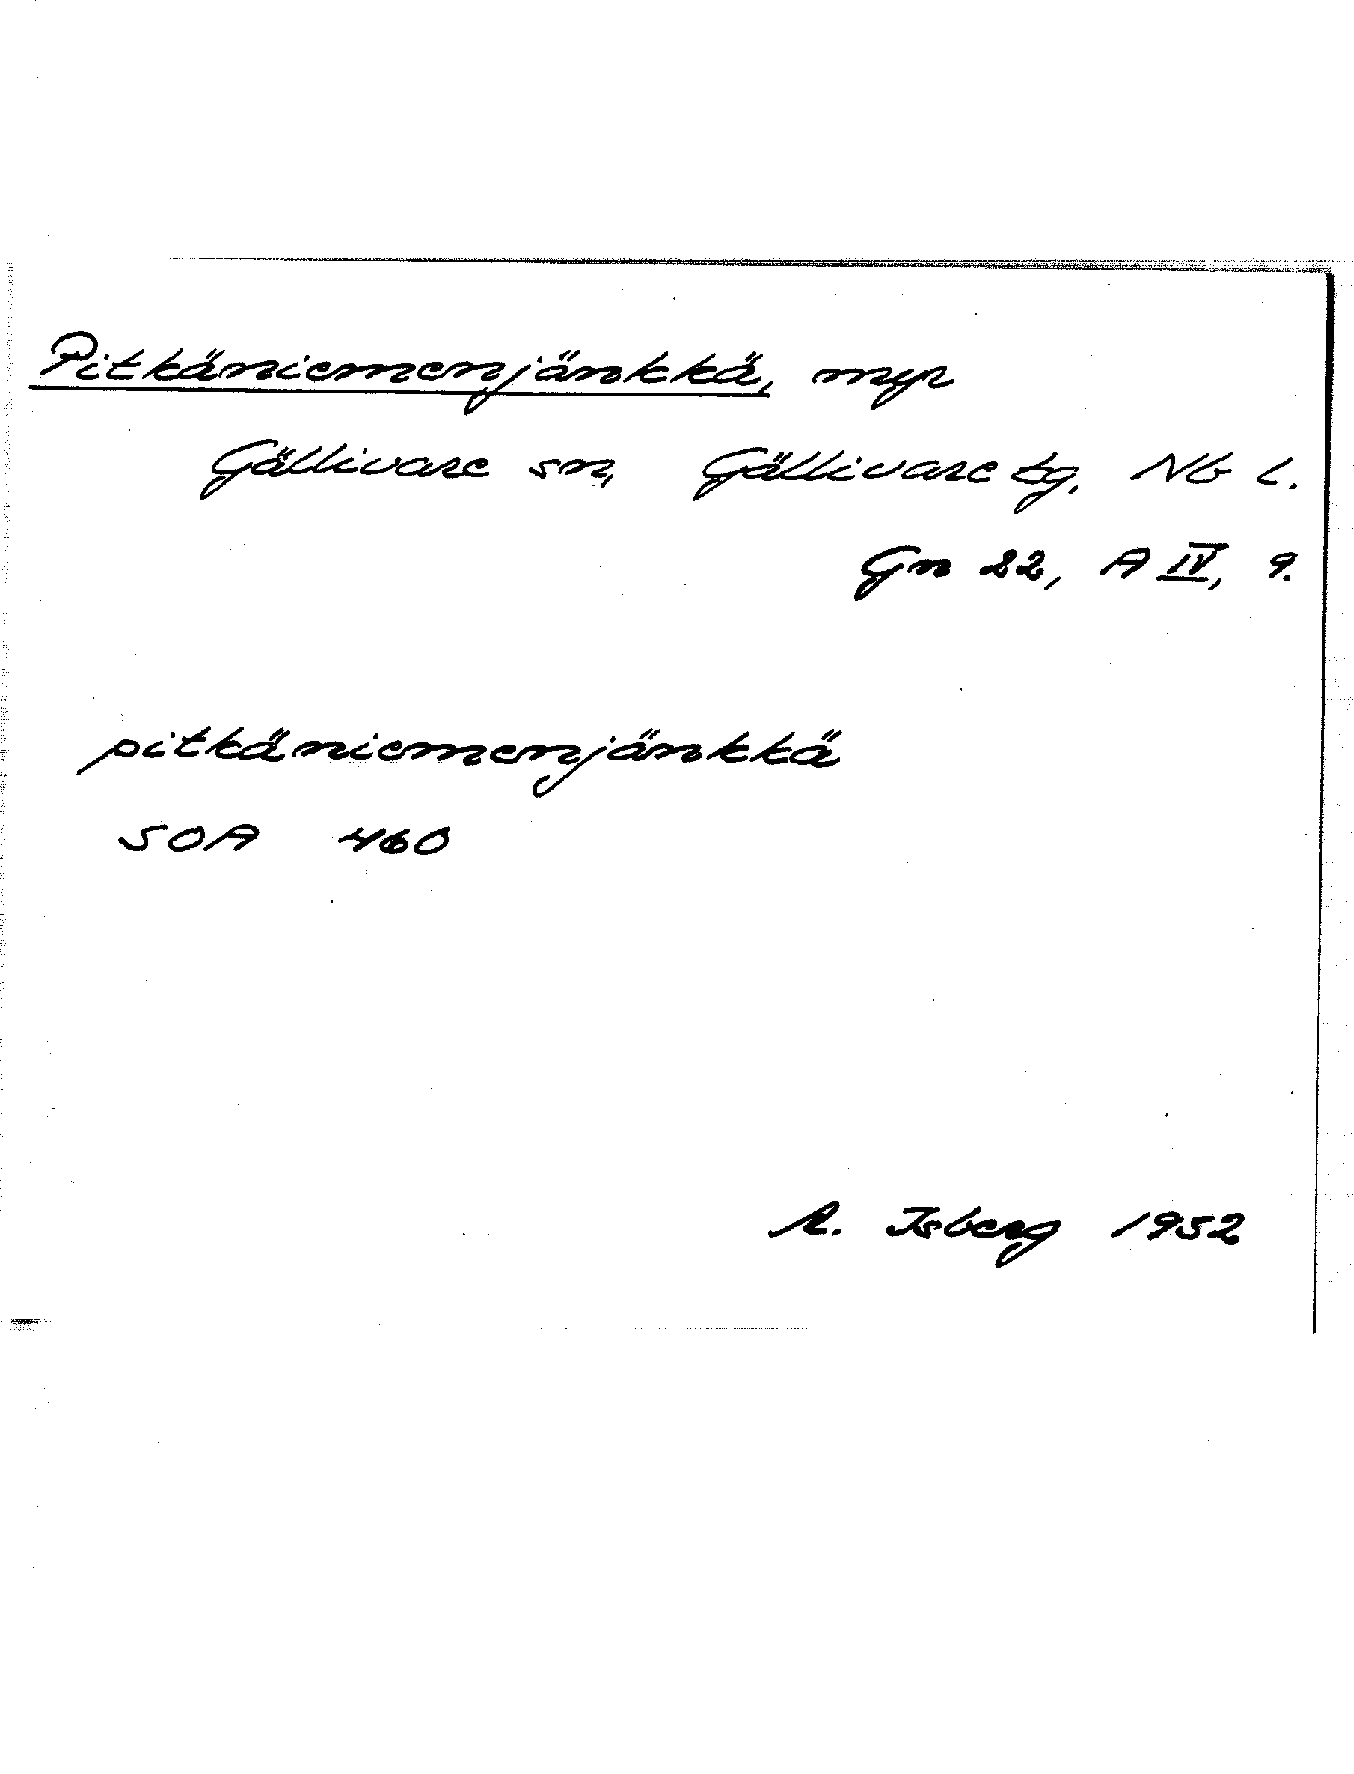 Pitkäniemenjänkkä, myr
Gällivare sn, Gällivare tg. Nb l.
Gn 22, A IV, 9.
pitkäniemenjänkkä
SOA 460
A. Isberg 1952